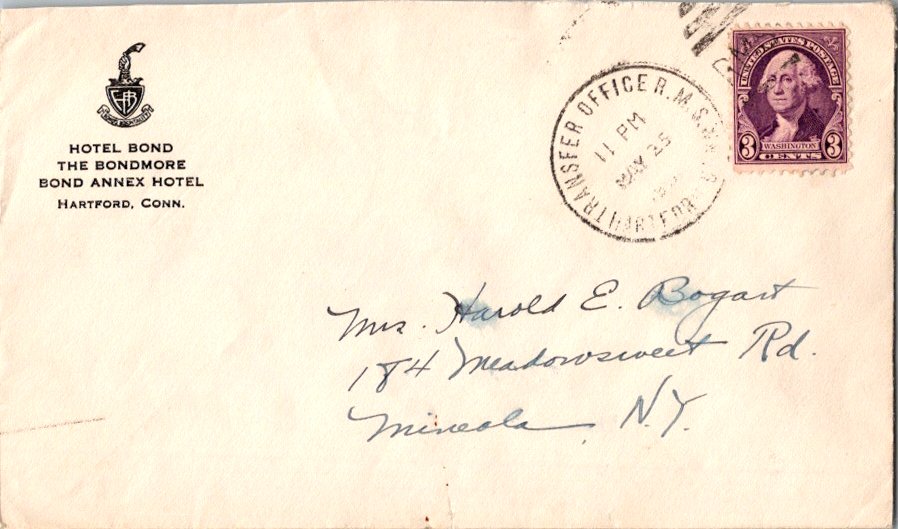 HOTEL BOND
THE BONDMORE
BOND ANNEX HOTEL
HARTFORD, CONN.
TRANSFER OFFICE R.M.S.
11 PM
MAY 25
UNITED STATES POSTAGE
3 WASHINGTON 3
CENTS
Mrs. Harold E. Bogart
184 Meadowsweet Rd.
Mineola, N.Y.